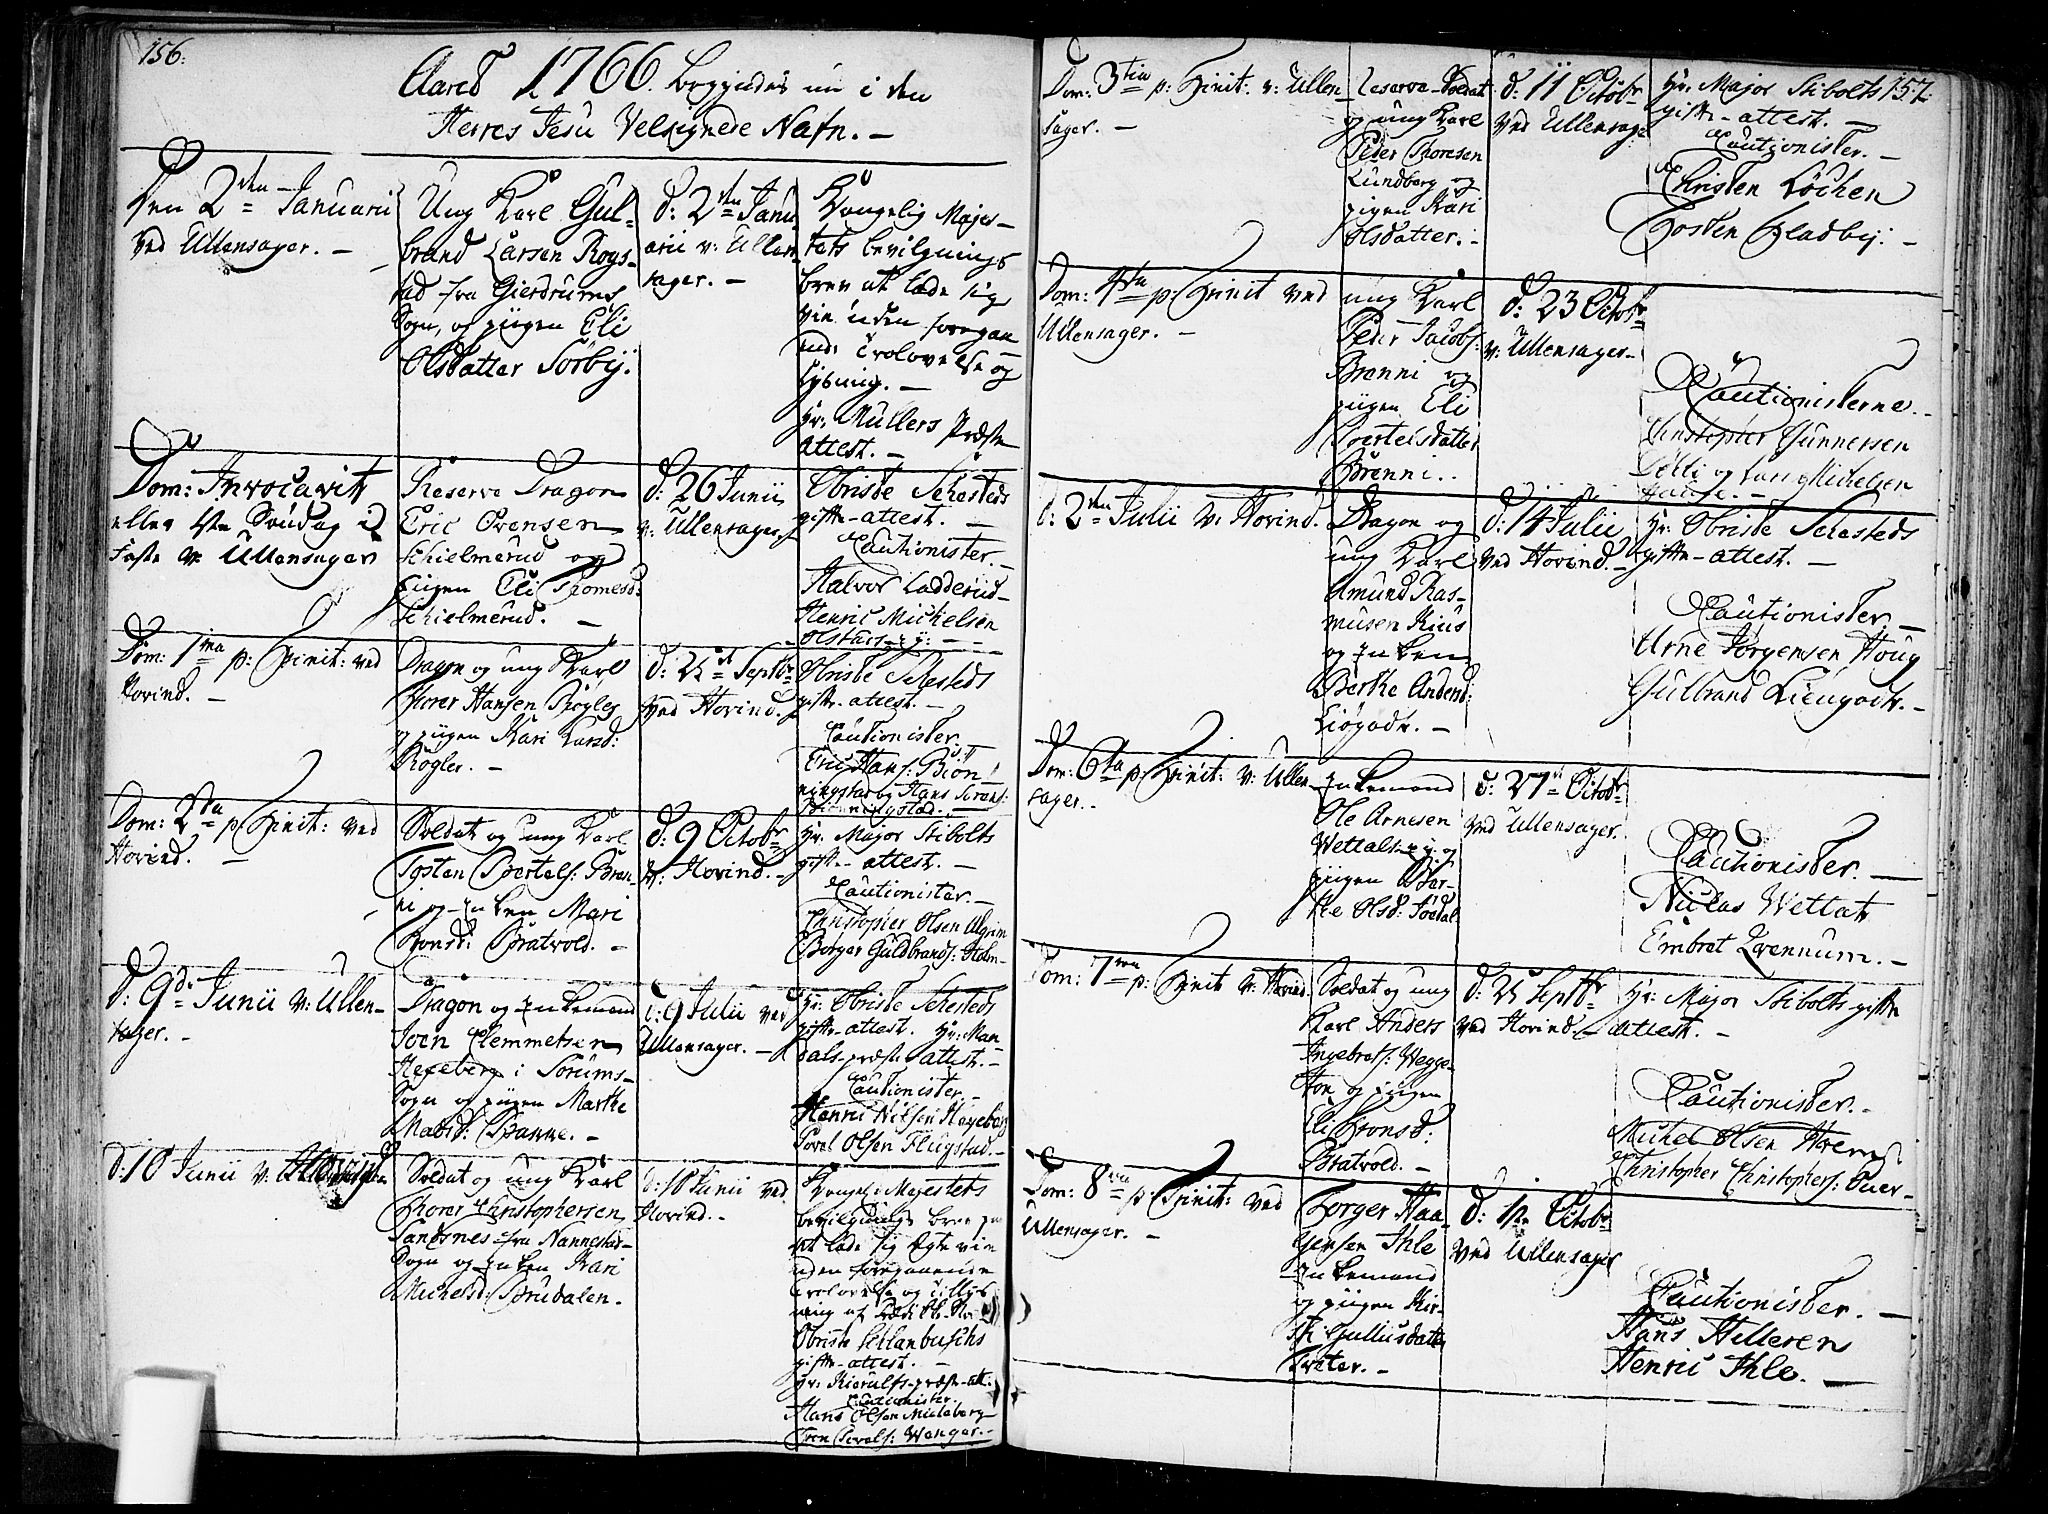 156.
Aaret 1766. begyndes nu i den
Herres Jesu Velsignede Nafn. –
Den 2den Januarii
ved Ullensager. –
Ung Karl Gul-
brand Larsen Rogs-
tad fra Gierdrums
Sogn, og piigen Eli
Olsdatter Sørbÿ.
d: 2den Janu
arii v: Ullen-
sager. –
Kongelig Majes-
tets bevilgnings
brev at lade sig
vie uden foregaa
ende trolovelse og
lysning. –
Hr: Müllers Præste
attest. –
Dom: Invocavit
eller 1ste Søndag i
Faste v: Ullensager
Reserve Dragon
Eric Evensen
Schielmerud og
Piigen Eli Thomesd:
Schielmerud. –
d: 26 Junii
v: Ullensager.
Obriste Sehesteds
gifte-attest. –
Cautionister. –
Halvor Ladderud
Henric Michelsen
Dom: 1ma p: Trinit: ved
Hovind. –
Dragon og ung Karl
Thorer Hansen Røgler
og piigen Kari Larsd:
Røgler. –
d: 25de Septbr
ved Hovind.
Obriste Sehesteds
gifte-attest. –
Cautionister.
Eric Hans: Biøn-
ningstad og Hans
Biønningstad.
Dom: 2da p: Trinit: ved
Hovind. –
Soldat og ung Karl
Tosten Bertels: Bren-
ni og Enken Mari
Tronsd: Bratvold. –
d: 9 Octobr
v: Hovind. –
Hr. Major Stibolts
gifte-attest. –
Cautionister. –
Christopher Olsen Algrim
Børger Guldbrands: Holm-
d: 9de Junii v: Ullen-
sager. –
Dragon og Enkemand
Joen Clemmetsen
Hexeberg i Sørums-
Sogn og piigen Marthe
Madsd: Banne. –
d: 9 Julii ved
Ullensager. –
Hr: Obriste Sehesteds
gifte-attest. Hr: Man-
dals-præste attest. –
Cautionister. –
Henric Nilsen Hexeberg
Povel Olsen Flugstad. –
d: 10 Junii v:
Soldat og ung Karl
Thorer Christophersen
Sandsnes fra Nannestad-
Sogn og Enken Kari
Michelsd: Brudalen. –
d: 10 Junii ved
Hovind. –
Kongel: Majestets
bevilgnings brev paa
at lade sig Ægte vie
uden foregaaende
trolovelse og tillys
ning af
Obriste
gifte-attest. –
Hr: Kierulfs-præste-att.
Cautionister.
Hans Olsen Mileberg
157.
Dom: 3tia p: Trinit: v: Ullen
sager. –
Reserve Soldat
og ung Karl
Peder Thoresen
Lundberg og
pigen Kari
Olsdatter. –
d: 11 Octobr
ved Ullensager
Hr. Major Stibolts
gifte-attest. –
Cautionister. –
Christen Løchen
Tosten Gladbÿ. –
Dom: 4ta p: Trinit ved
Ullensager. –
ung Karl
Peder Jacobs:
Brenni og
piigen Eli
Soertelsdatter
Brenni. .
d: 23 Octobr
v: Ullensager.
Cautionisterne.
Christopher Gunnersen
og Lars Michelsen
d: 2den Julii v: Hovind.
Dragon og
ung Karl
Amund Ras-
musen Rius
og Enken
Berthe Andersd:
Liøgodt. –
d: 14 Julii
ved Hovind. –
Hr. Obriste Sehesteds
gifte-attest. –
Cautionister. –
Arne Jørgensen Houg
Gulbrand Liøngodt. –
Dom: 6ta p: Trinit: v: Ullen
sager. –
Enkemand
Ole Arnesen
og
piigen Ber-
the Olsd: Sørdal
d: 27de Octobr
ved Ullensager.
Cautionister. –
Niclas Wettal
Embret Qvennum. –
Dom: 7ma p: Trinit v: Hovind
Soldat og ung
Karl Anders
Ingebrets: Wegge-
ton og piigen
Eli Tronsd:
Bratvold. –
d: 25 Septbr
ved Hovind. –
Hr: Major Stibolts gifte
attest. –
Cautionister. –
Michel Olsen
Christopher Christophers: Quer-
Dom: 8va p: Trinit: ved
Ullensager. –
Torger Haa-
gensen Ihle
Enkemand
og piigen Kir-
sti Gulliksdatter
Træter. –
d: Octobr
ved Ullensager
Cautionister. –
Hans Hilleren
Henric Ihle. –